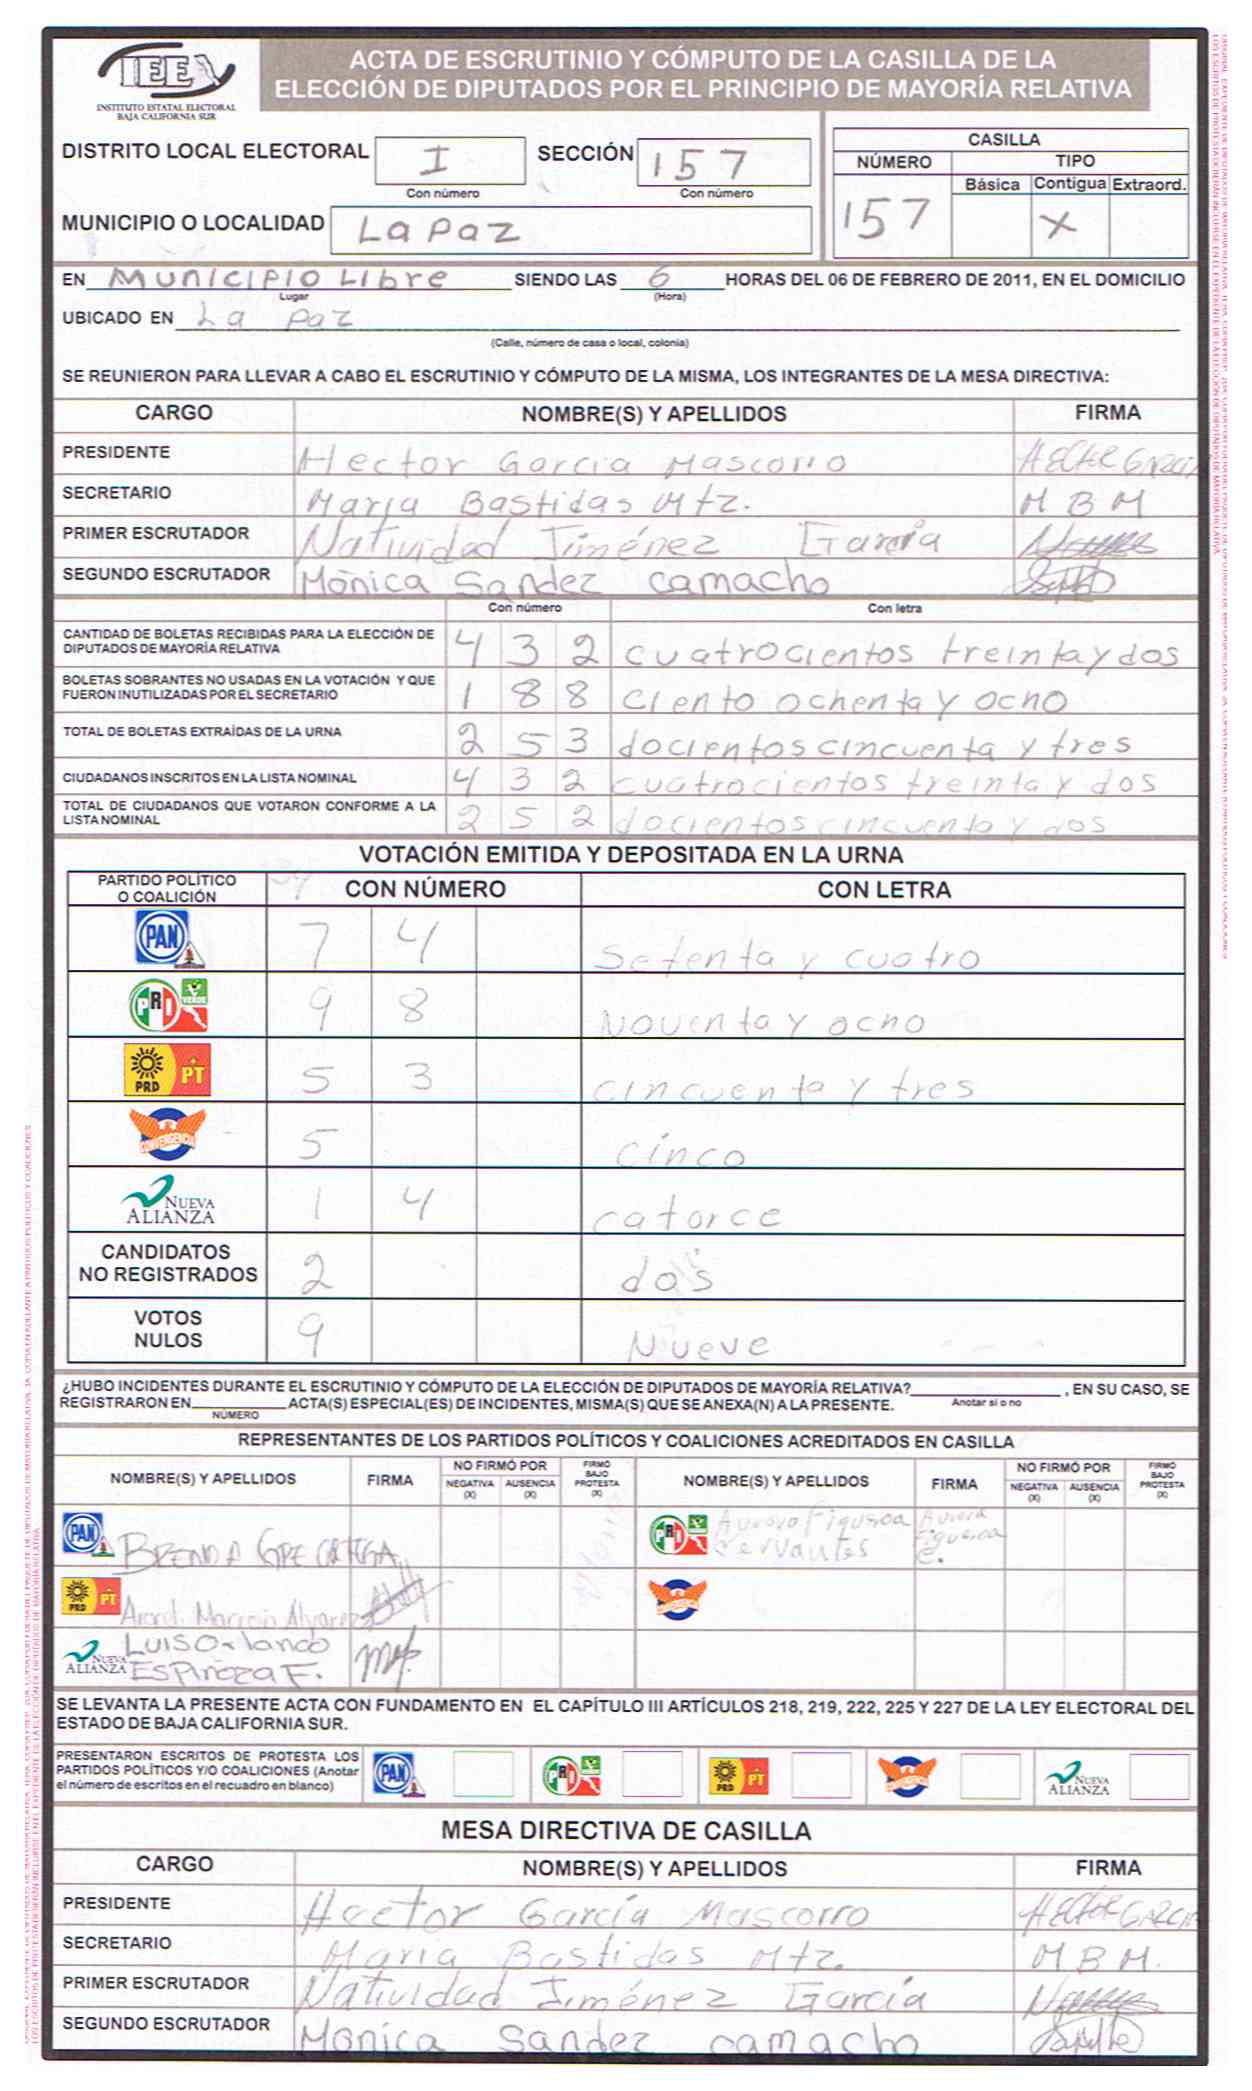 IEEA
INSTITUTO ESTATAL ELECTORAL
BAJA CALIFORNIA SUR
ACTA DE ESCRUTINIO Y CÓMPUTO DE LA CASILLA DE LA
ELECCIÓN DE DIPUTADOS POR EL PRINCIPIO DE MAYORÍA RELATIVA
DISTRITO LOCAL ELECTORAL I SECCIÓN 157
Con número Con número
MUNICIPIO O LOCALIDAD La Paz
CASILLA
NÚMERO TIPO
Básica Contigua Extraord.
157 X
EN Municipio Libre SIENDO LAS 6 HORAS DEL 06 DE FEBRERO DE 2011, EN EL DOMICILIO
Lugar (Hora)
UBICADO EN La Paz
(Calle, número de casa o local, colonia)
SE REUNIERON PARA LLEVAR A CABO EL ESCRUTINIO Y CÓMPUTO DE LA MISMA, LOS INTEGRANTES DE LA MESA DIRECTIVA:
CARGO NOMBRE(S) Y APELLIDOS FIRMA
PRESIDENTE Hector Garcia Mascorro HECTOR GARCIA
SECRETARIO Maria Bastidas Mtz. M B M
PRIMER ESCRUTADOR Natividad Jiménez García
SEGUNDO ESCRUTADOR Mònica Sandez camacho
Con número Con letra
CANTIDAD DE BOLETAS RECIBIDAS PARA LA ELECCIÓN DE
DIPUTADOS DE MAYORÍA RELATIVA 4 3 2 cuatrocientos treinta y dos
BOLETAS SOBRANTES NO USADAS EN LA VOTACIÓN Y QUE
FUERON INUTILIZADAS POR EL SECRETARIO 1 8 8 ciento ochenta y ocho
TOTAL DE BOLETAS EXTRAÍDAS DE LA URNA 2 5 3 docientos cincuenta y tres
CIUDADANOS INSCRITOS EN LA LISTA NOMINAL 4 3 2 cuatrocientos treinta y dos
TOTAL DE CIUDADANOS QUE VOTARON CONFORME A LA
LISTA NOMINAL 2 5 2 docientos cincuenta y dos
VOTACIÓN EMITIDA Y DEPOSITADA EN LA URNA
PARTIDO POLÍTICO
O COALICIÓN CON NÚMERO CON LETRA
PAN 7 4 Setenta y cuatro
PRI VERDE 9 8 Noventa y ocho
PRD PT 5 3 cincuenta y tres
CONVERGENCIA 5 cinco
NUEVA ALIANZA 1 4 catorce
CANDIDATOS
NO REGISTRADOS 2 dos
VOTOS
NULOS 9 Nueve
¿HUBO INCIDENTES DURANTE EL ESCRUTINIO Y CÓMPUTO DE LA ELECCIÓN DE DIPUTADOS DE MAYORÍA RELATIVA? , EN SU CASO, SE
Anotar si o no
REGISTRARON EN ACTA(S) ESPECIAL(ES) DE INCIDENTES, MISMA(S) QUE SE ANEXA(N) A LA PRESENTE.
NÚMERO
REPRESENTANTES DE LOS PARTIDOS POLÍTICOS Y COALICIONES ACREDITADOS EN CASILLA
NOMBRE(S) Y APELLIDOS FIRMA NO FIRMÓ POR NEGATIVA (X) AUSENCIA (X) FIRMÓ BAJO PROTESTA (X) NOMBRE(S) Y APELLIDOS FIRMA NO FIRMÓ POR NEGATIVA (X) AUSENCIA (X) FIRMÓ BAJO PROTESTA (X)
PAN BRENDA GPE ORTEGA PRI Aurora Figueroa Cervantes Aurora Figueroa C.
PRD PT Araceli Alvarez
NUEVA ALIANZA LUIS Orlando
Espinoza F.
SE LEVANTA LA PRESENTE ACTA CON FUNDAMENTO EN EL CAPÍTULO III ARTÍCULOS 218, 219, 222, 225 Y 227 DE LA LEY ELECTORAL DEL
ESTADO DE BAJA CALIFORNIA SUR.
PRESENTARON ESCRITOS DE PROTESTA LOS
PARTIDOS POLÍTICOS Y/O COALICIONES (Anotar
el número de escritos en el recuadro en blanco)
PAN PRI PRD PT NUEVA ALIANZA
MESA DIRECTIVA DE CASILLA
CARGO NOMBRE(S) Y APELLIDOS FIRMA
PRESIDENTE Hector García Mascorro HECTOR GARCIA
SECRETARIO Maria Bastidas Mtz. M B M.
PRIMER ESCRUTADOR Natividad Jiménez García
SEGUNDO ESCRUTADOR Monica Sandez camacho